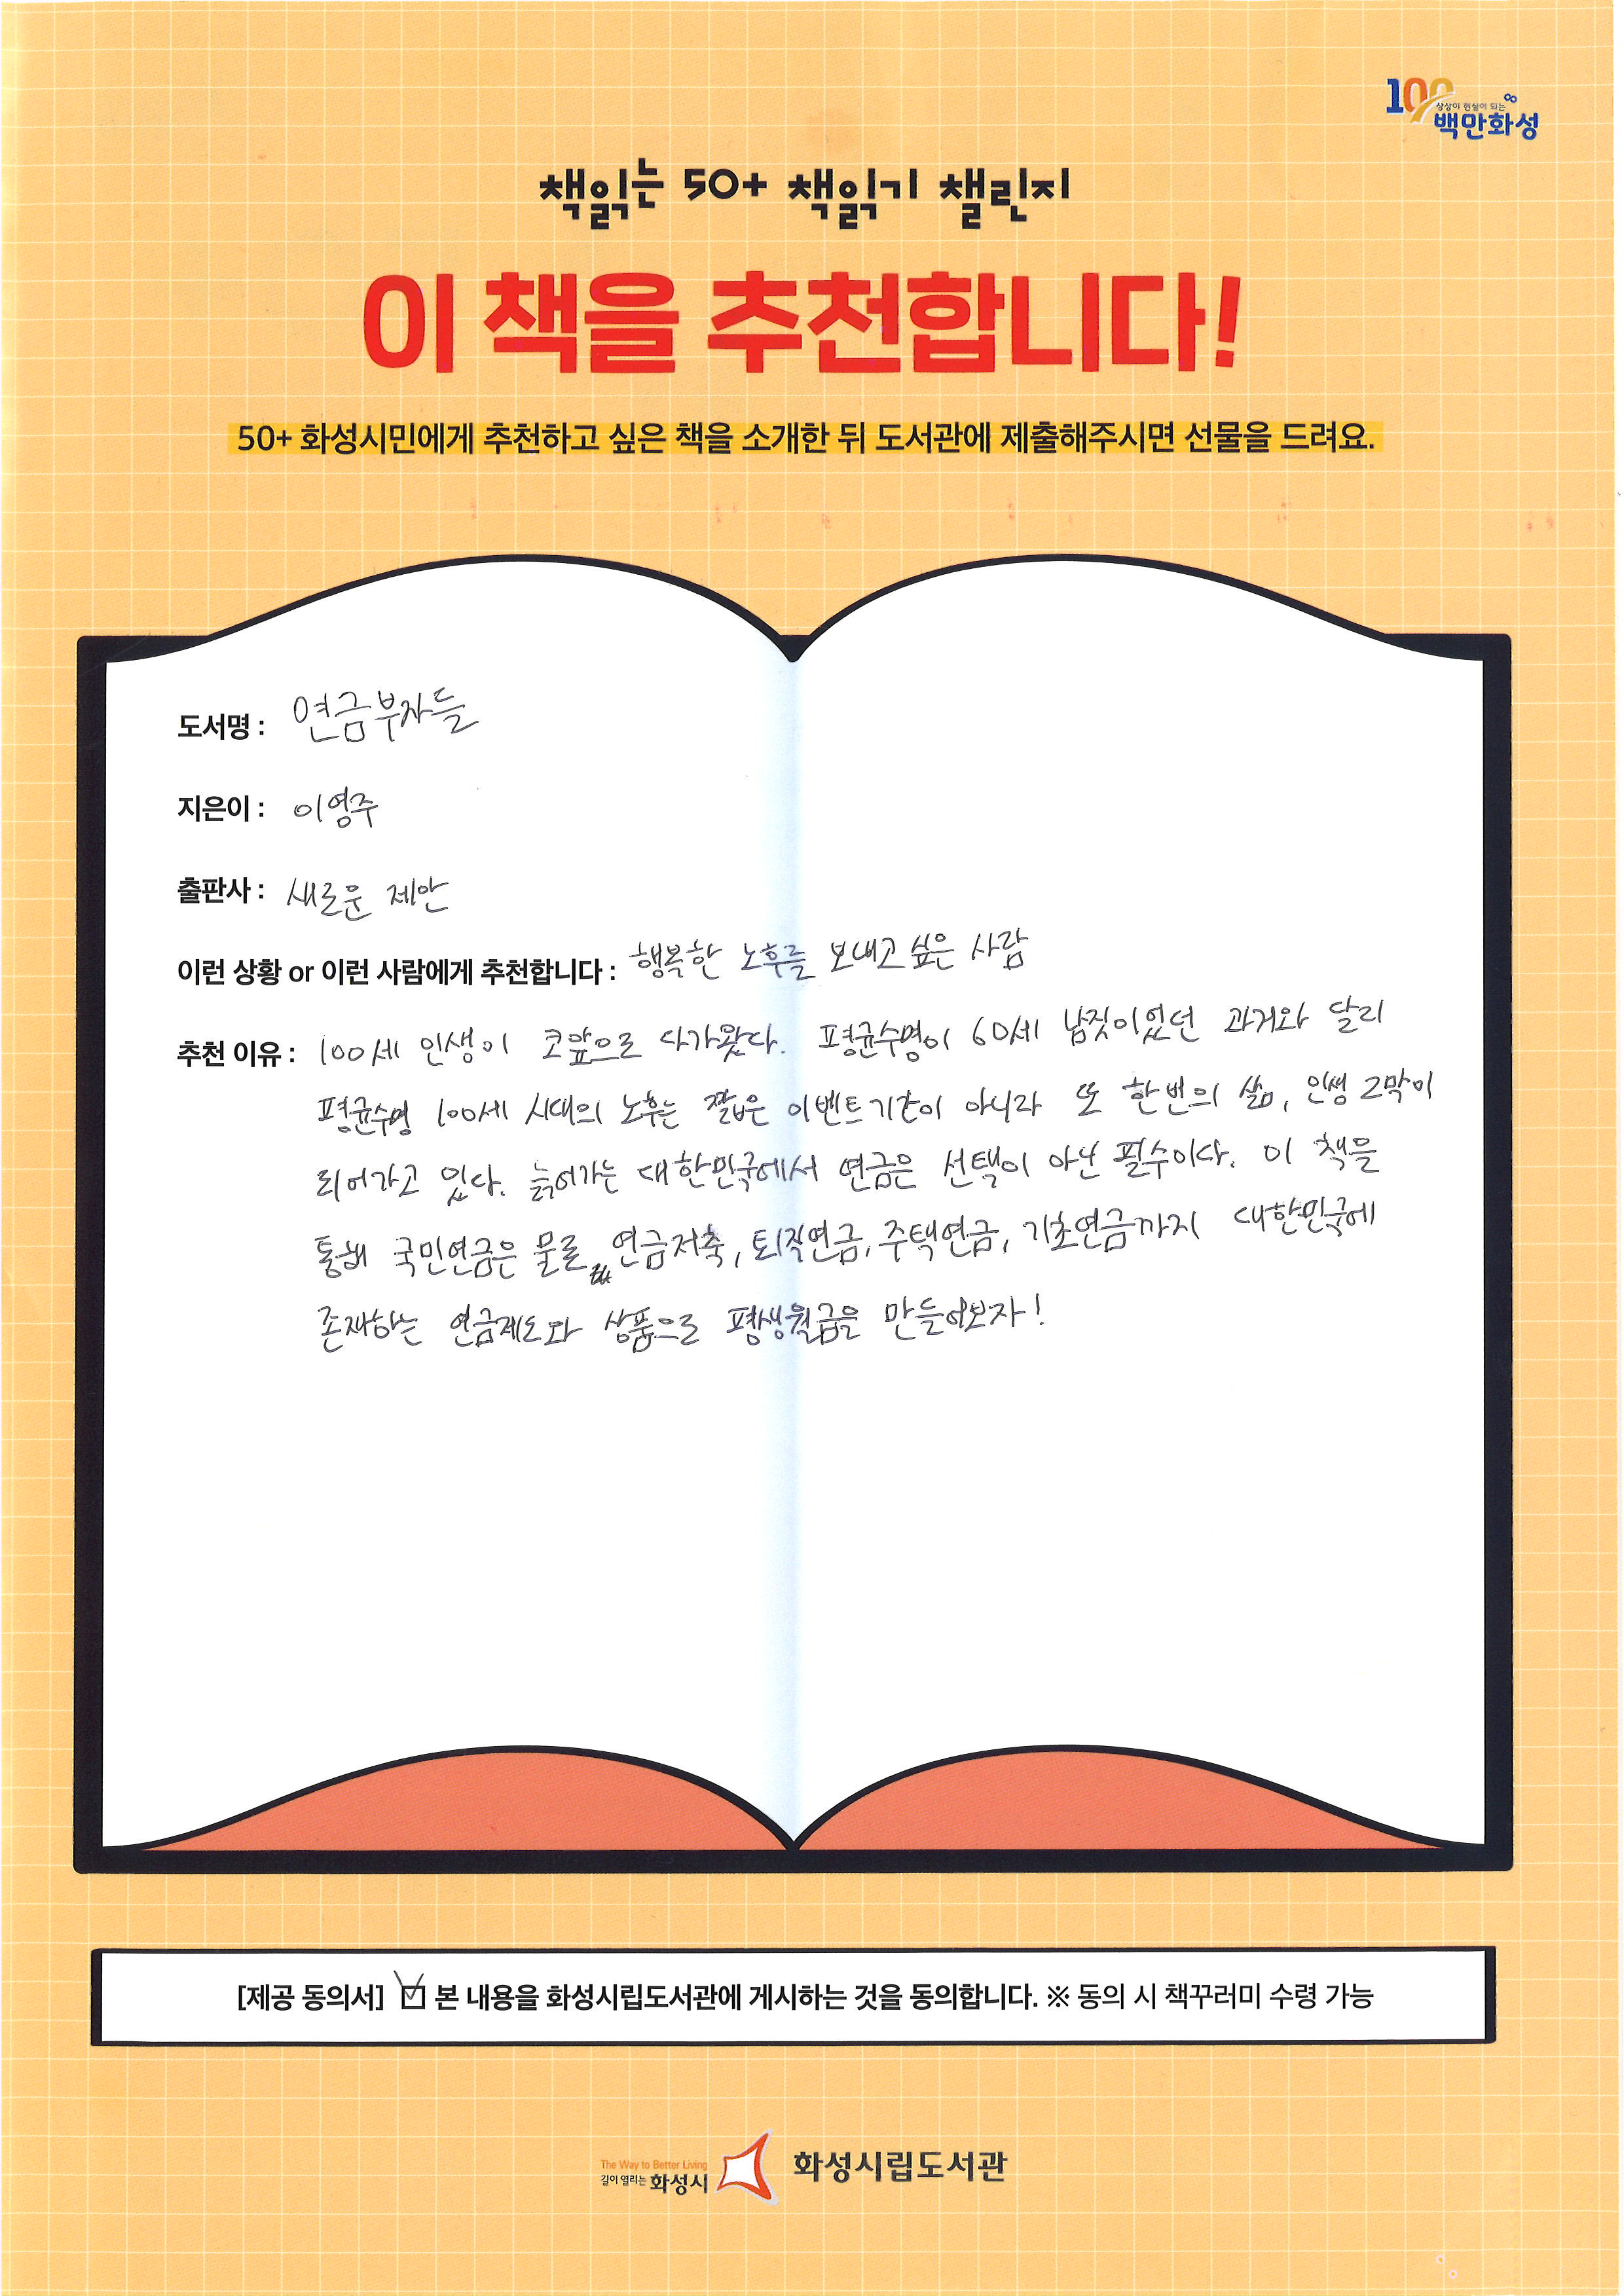 100
상상이 현실이 되는
백만화성
책읽는 50+ 책읽기 챌린지
이 책을 추천합니다!
50+ 화성시민에게 추천하고 싶은 책을 소개한 뒤 도서관에 제출해주시면 선물을 드려요.
도서명 : 연금부자들
지은이 : 이영주
출판사 : 새로운 제안
이런 상황 or 이런 사람에게 추천합니다 : 행복한 노후를 보내고 싶은 사람
추천 이유 : 100세 인생이 코앞으로 다가왔다. 평균수명이 60세 남짓이었던 과거와 달리
평균수명 100세 시대의 노후는 짧은 이벤트기간이 아니라 또 한번의 삶, 인생 2막이
되어가고 있다. 늙어가는 대한민국에서 연금은 선택이 아닌 필수이다. 이 책을
통해 국민연금은 물론 연금저축, 퇴직연금, 주택연금, 기초연금까지 대한민국에
존재하는 연금제도와 상품으로 평생월급을 만들어보자!
[제공 동의서] 본 내용을 화성시립도서관에 게시하는 것을 동의합니다. ※ 동의 시 책꾸러미 수령 가능
The Way to Better Living
길이 열리는 화성시
화성시립도서관